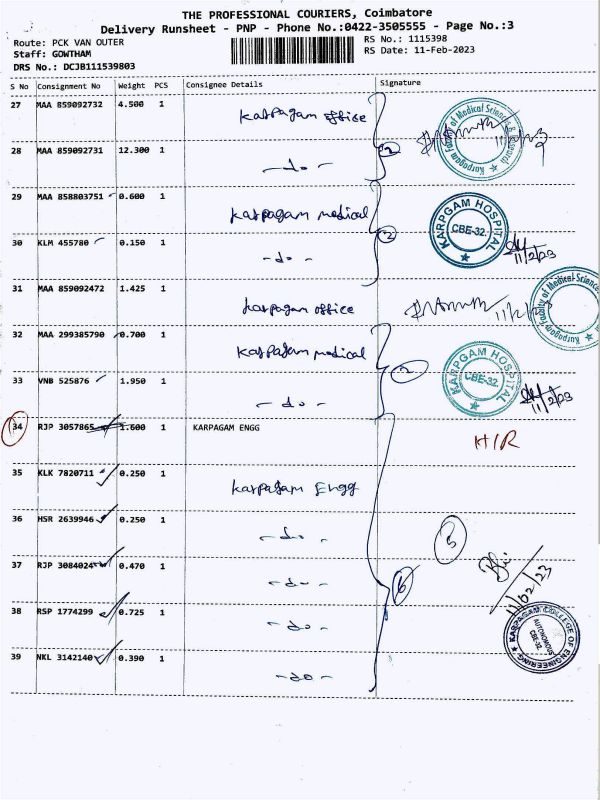 THE PROFESSIONAL COURIERS, Coimbatore
Delivery Runsheet - PNP - Phone No.:0422-3505555 - Page No.:3
Route: PCK VAN OUTER
RS No.: 1115398
Staff: GOWTHAM
RS Date: 11-Feb-2023
DRS No.: DCJB111539803
S No Consignment No Weight PCS Consignee Details Signature
27 MAA 859092732 4.500 1 Karpagam office
Karpagam Faculty of Medical Sciences & Research
11/2/23
28 MAA 859092731 12.300 1 -do-
2
29 MAA 858803751 0.600 1 Karpagam medical
2
KARPGAM HOSPITAL
CBE-32.
30 KLM 455780 0.150 1 -do-
11/2/23
31 MAA 859092472 1.425 1 Karpagam office
11/2/23
Karpagam Faculty of Medical Sciences
32 MAA 299385790 0.700 1 Karpagam medical
2
KARPGAM HOSPITAL
CBE-32.
33 VNB 525876 1.950 1 -do-
11/2/23
34 RJP 3057865 1.600 1 KARPAGAM ENGG
H/R
35 KLK 7820711 0.250 1 Karpagam Engg
36 HSR 2639946 0.250 1 -do-
5
37 RJP 3084024 0.470 1 -do-
6
11/02/23
38 RSP 1774299 0.725 1 -do-
KARPAGAM COLLEGE OF ENGINEERING
AUTONOMOUS
CBE-32.
39 NKL 3142140 0.390 1 -do-